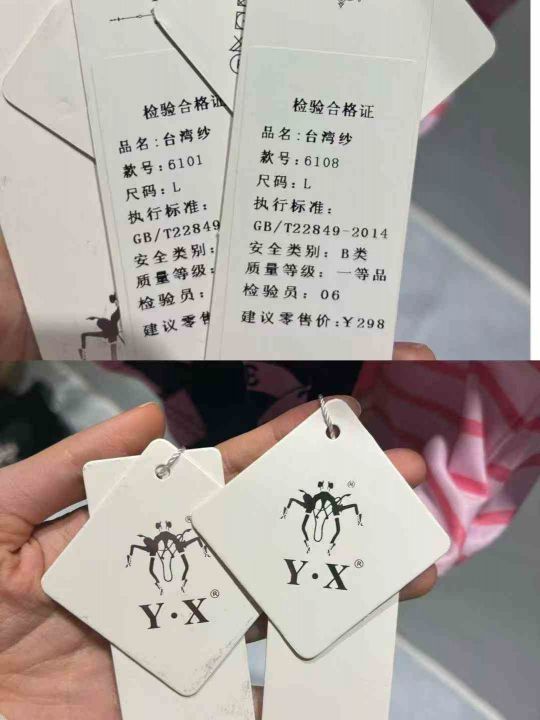 检验合格证
品名:台湾纱
款号:6101
尺码:L
执行标准:
GB/T22849
安全类别:
质量等级:
检验员:
建议零售
检验合格证
品名:台湾纱
款号:6108
尺码:L
执行标准:
GB/T22849-2014
安全类别: B类
质量等级: 一等品
检验员: 06
建议零售价:¥298
®
Y·X®
®
Y·X®